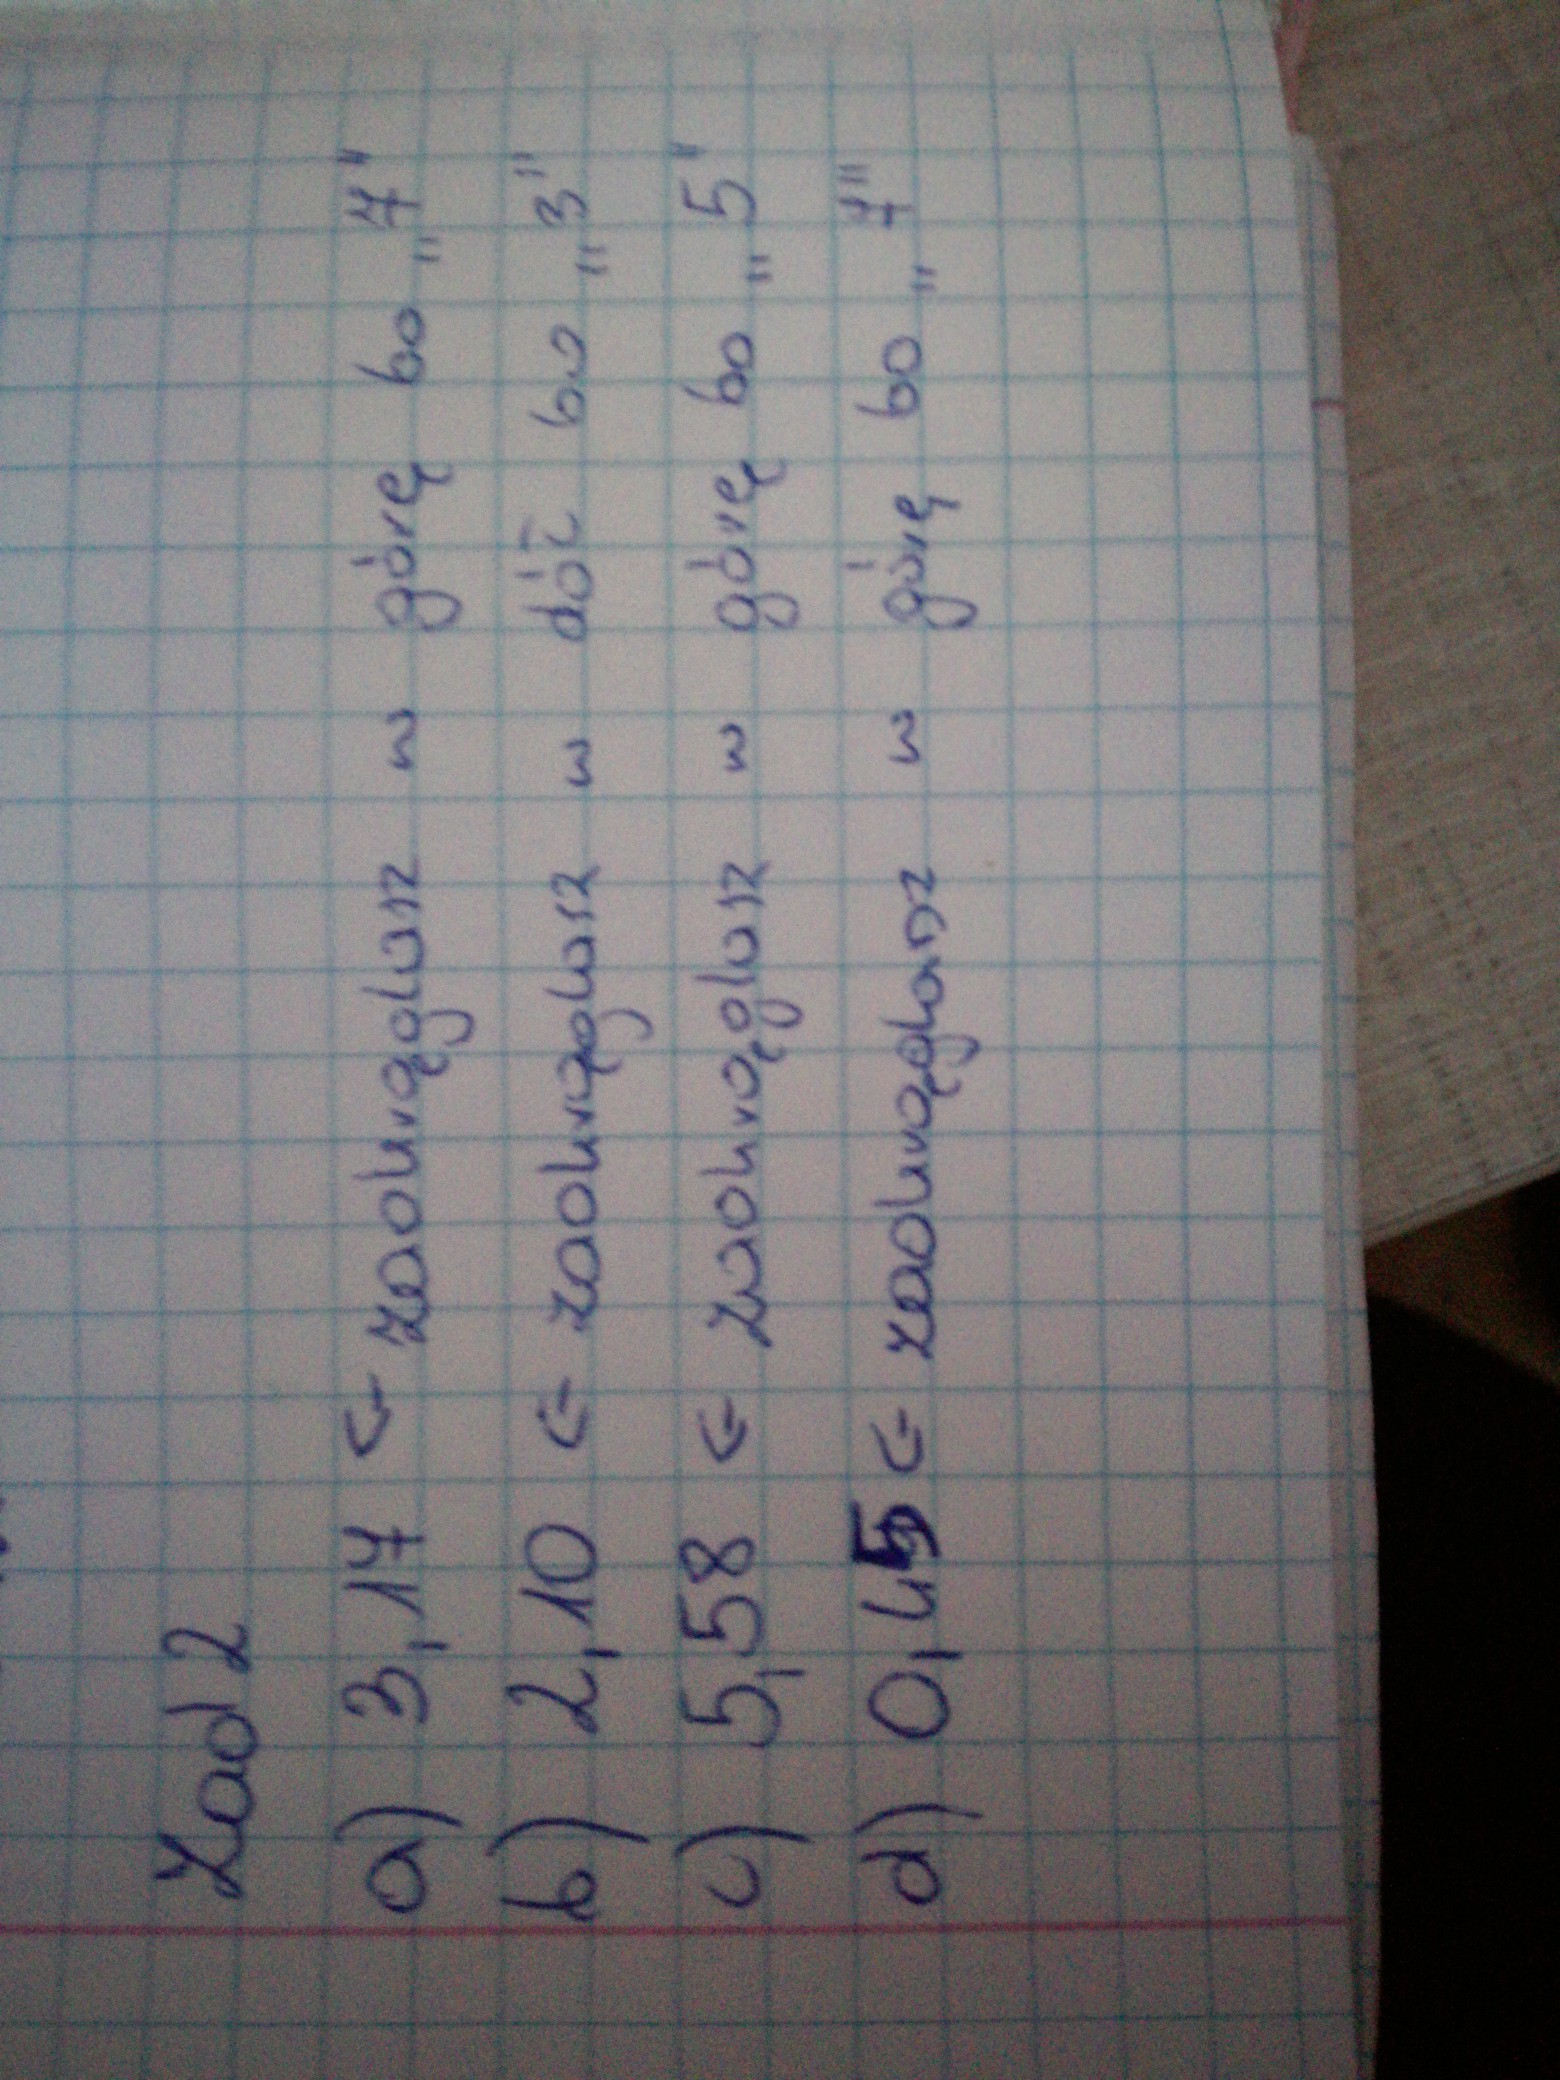 Zad 2
a) 3,17 ← zaokrąglasz w górę bo „7"
b) 2,10 ← zaokrąglasz w dół bo „3"
c) 5,58 ← zaokrąglasz w górę bo „5"
d) 0,45 ← zaokrąglasz w górę bo „7"